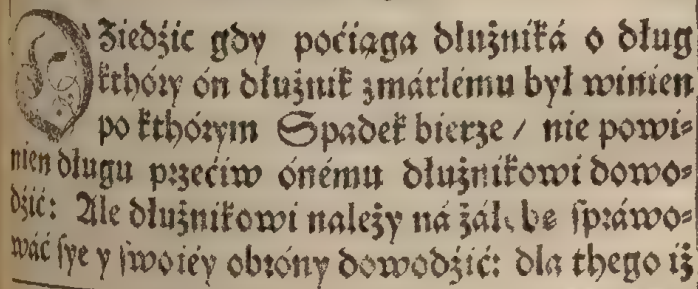 DZiedźic gdy poćiąga dłużniká o dług
kthóry ón dłużnik zmárłému był winien
po kthórym Spadek bierze / nie powi⸗
nien długu przećiw ónému dłużnikowi dowo⸗
dźić: Ale dłużnikowi należy ná żáłobę spráwo⸗
wáć sye y swoiéy obróny dowodźić: dla thego iż